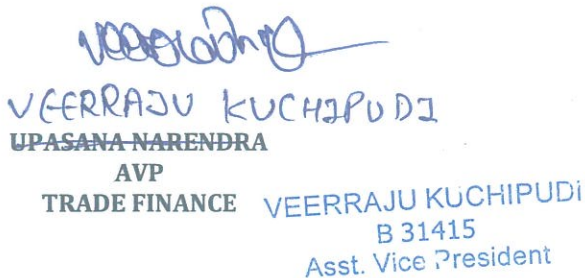 VEERRAJU KUCHIPUDI
UPASANA NARENDRA
AVP
TRADE FINANCE
VEERRAJU KUCHIPUDi
B 31415
Asst. Vice President